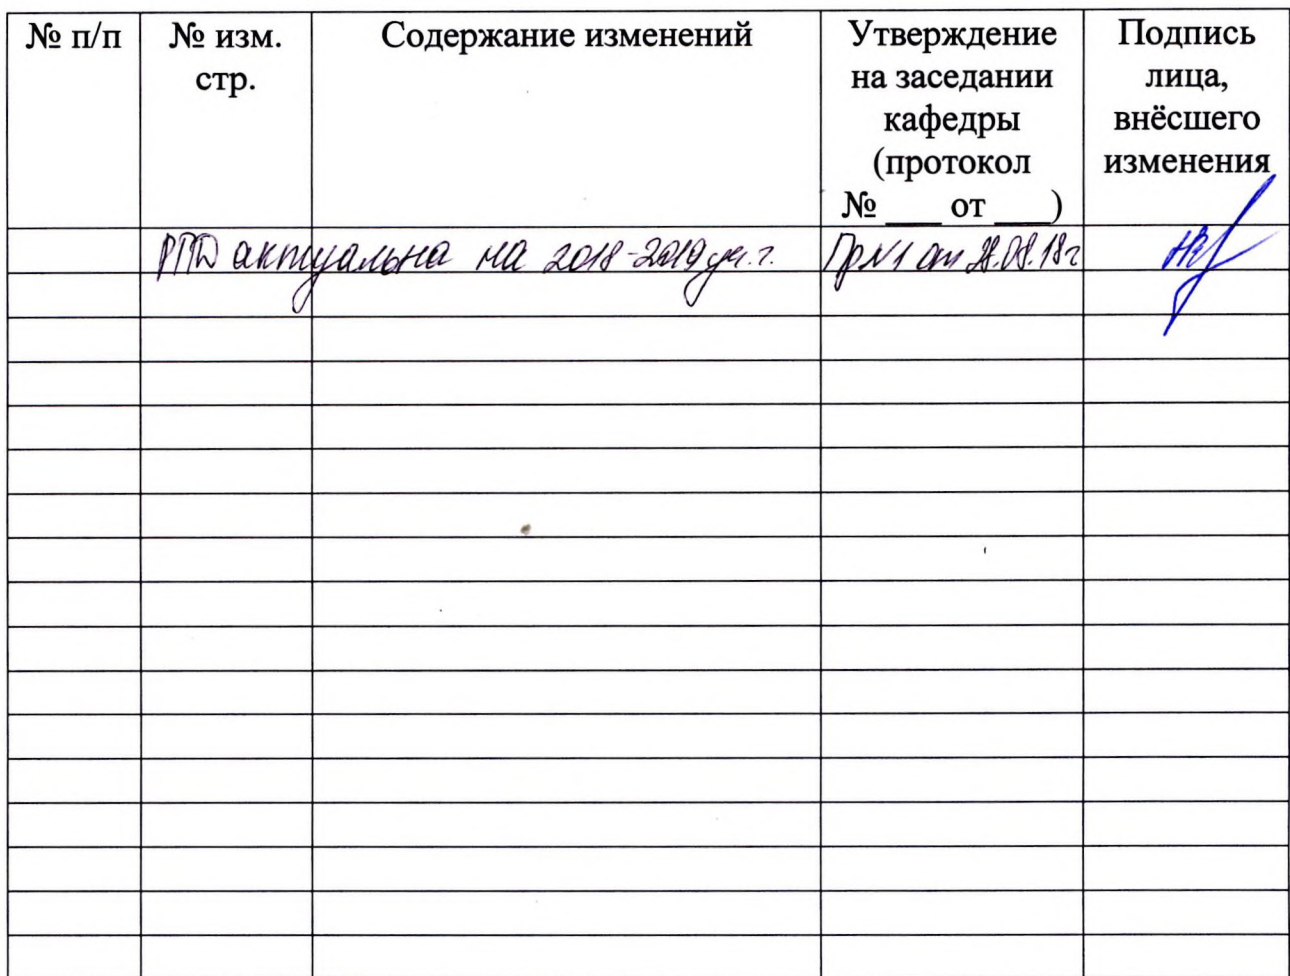 № п/п
№ изм.
стр.
Содержание изменений
Утверждение
на заседании
кафедры
(протокол
№ ____ от ____)
Подпись
лица,
внёсшего
изменения
РПД актуальна на 2018-2019 уч. г.
Пр №1 от 28.08.18г